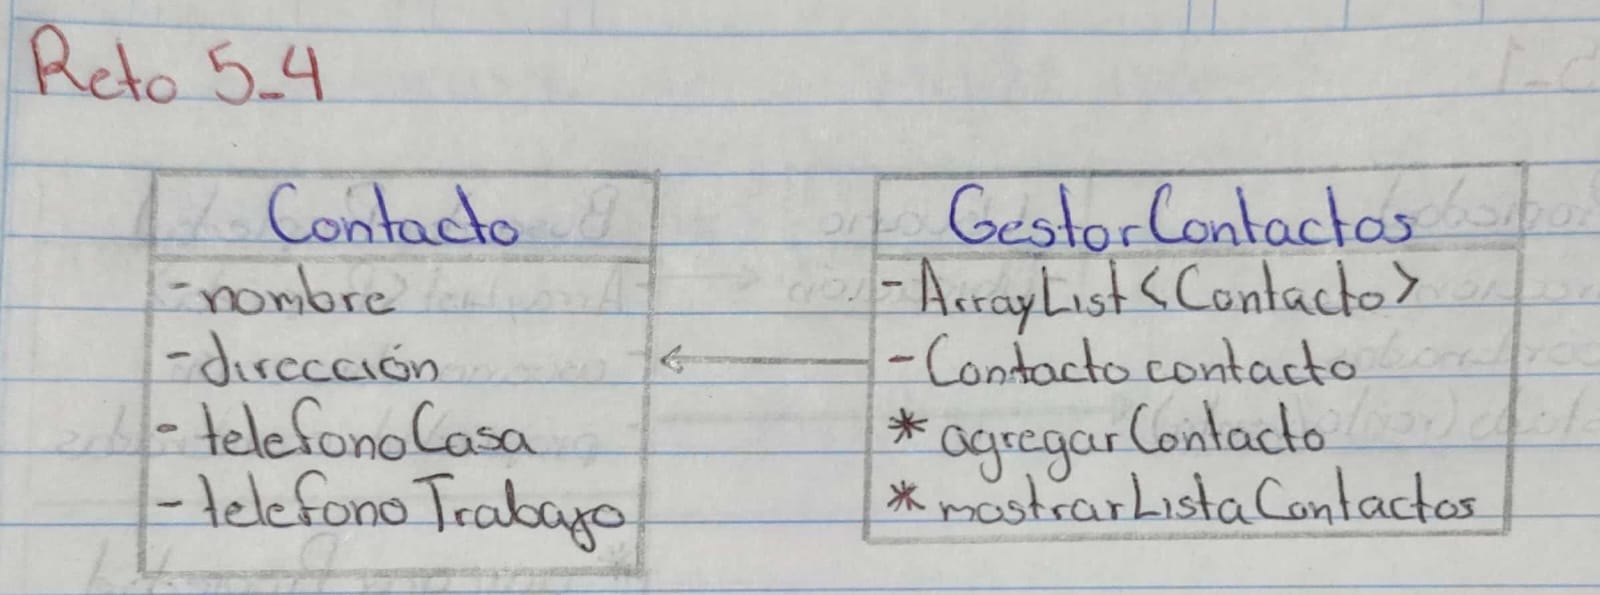 Reto 5_4
Contacto
- nombre
- dirección
- telefonoCasa
- telefonoTrabajo
GestorContactos
- ArrayList<Contacto>
- Contacto contacto
* agregarContacto
* mostrarListaContactos